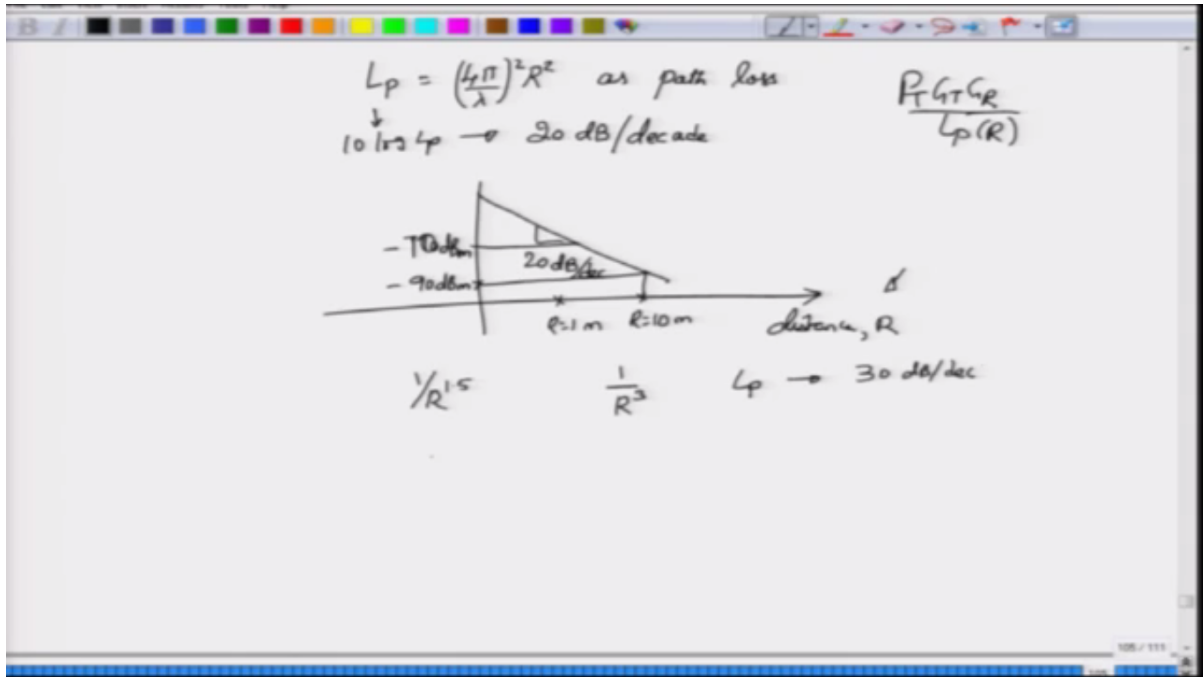 Lp = (4π/λ)²R² as path loss
PT GT GR / Lp(R)
↓
10 log Lp → 20 dB/decade
-70dBm
20 dB/dec
-90dBm
R=1 m R=10 m
distance, R
1/R^1.5 1/R³ Lp → 30 dB/dec
105 / 111